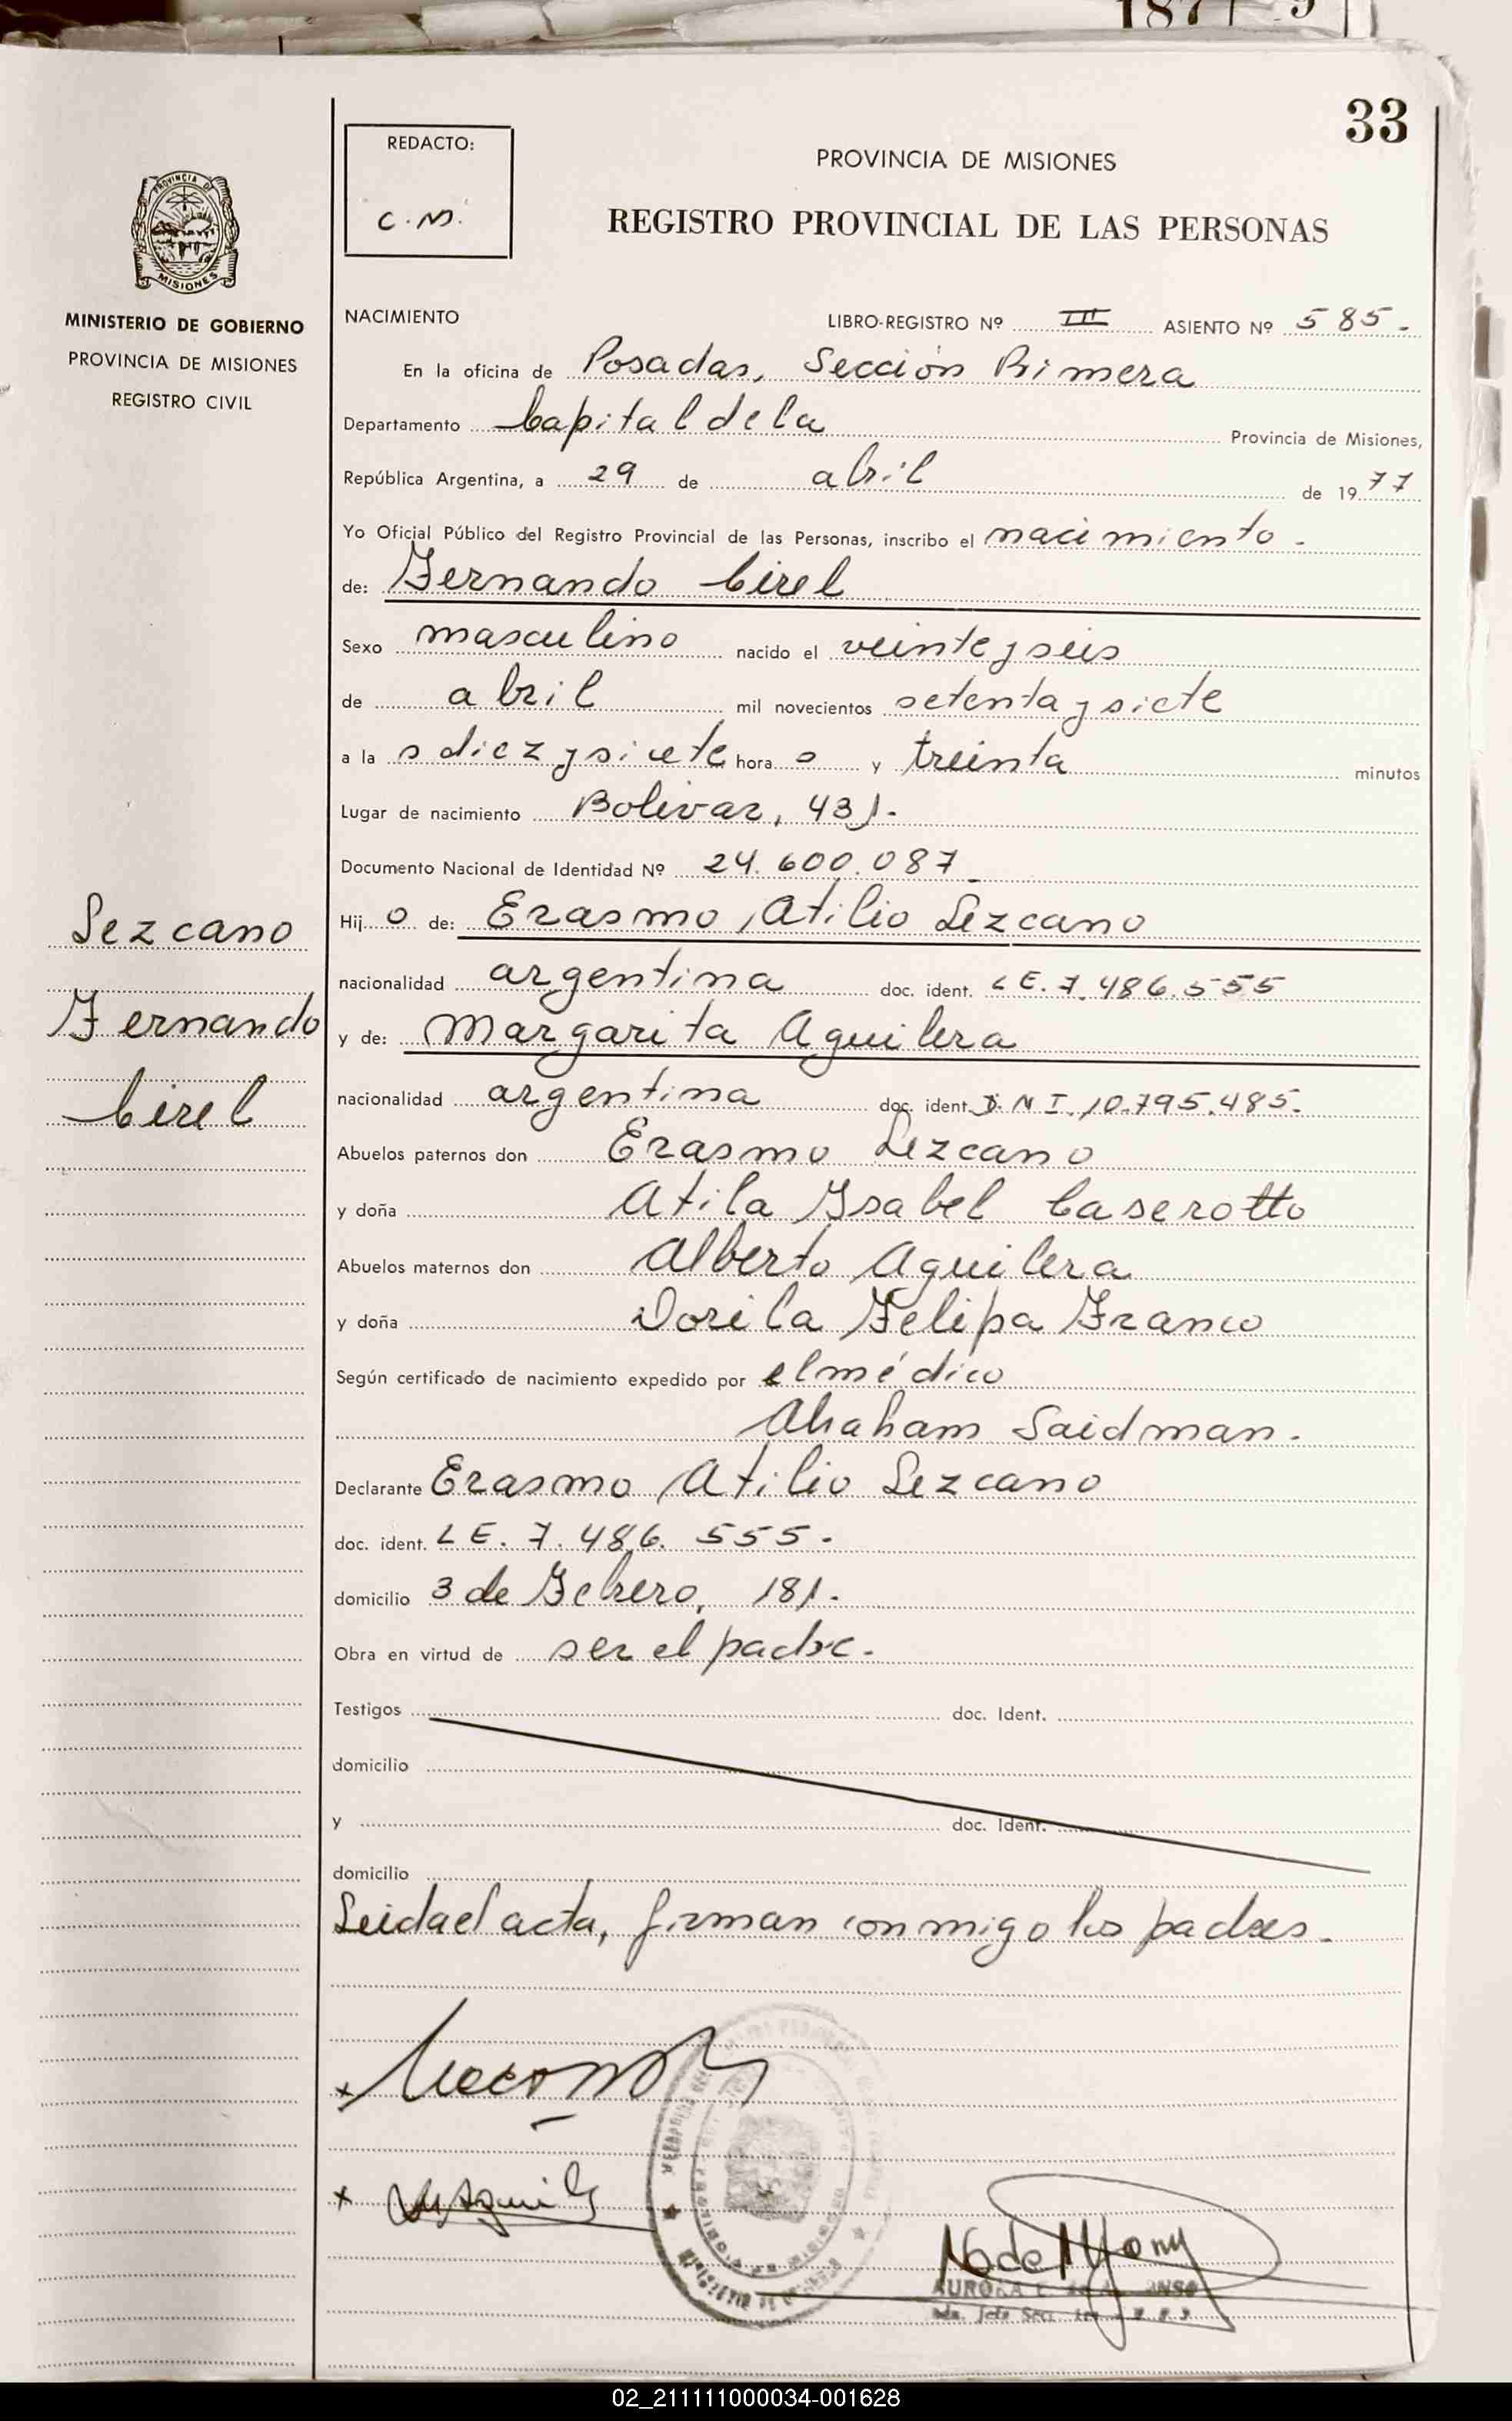 187
33
REDACTO:
C.M.
PROVINCIA DE MISIONES
REGISTRO PROVINCIAL DE LAS PERSONAS
PROVINCIA DE
MISIONES
MINISTERIO DE GOBIERNO
PROVINCIA DE MISIONES
REGISTRO CIVIL
NACIMIENTO LIBRO-REGISTRO Nº III ASIENTO Nº 585.
En la oficina de Posadas, Sección Primera
Departamento Capital de la Provincia de Misiones,
República Argentina, a 29 de abril de 1977
Yo Oficial Público del Registro Provincial de las Personas, inscribo el nacimiento.
de: Fernando Cirel
Sexo masculino nacido el veinte y seis
de abril mil novecientos setenta y siete
a la s diez y siete hora s y treinta minutos
Lugar de nacimiento Bolivar, 431.
Documento Nacional de Identidad Nº 24.600.087
Hij o de: Erasmo Atilio Lezcano
nacionalidad argentina doc. ident. LE. 7.486.555
y de: Margarita Aguilera
nacionalidad argentina doc. ident. D.N.I. 10.795.485.
Lezcano
Fernando
Cirel
Abuelos paternos don Erasmo Lezcano
y doña Atila Ysabel Caserotto
Abuelos maternos don Alberto Aguilera
y doña Dorila Felipa Franco
Según certificado de nacimiento expedido por el médico
Abraham Saidman.
Declarante Erasmo Atilio Lezcano
doc. ident. LE. 7.486.555.
domicilio 3 de Febrero, 181.
Obra en virtud de ser el padre.
Testigos doc. Ident.
domicilio
y doc. Ident.
domicilio
Leida el acta, firman conmigo los padres.
x
x
AURORA
02_211111000034-001628